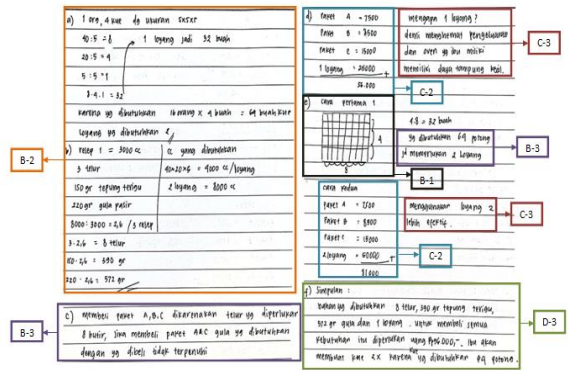 a) 1 org, 4 kue dg ukuran 5x5x5
40:5 = 8
1 loyang jadi 32 buah
20:5 = 4
5:5 = 1
8·4·1 = 32
karena yg dibutuhkan 16 orang x 4 buah = 64 buah kue
loyang yg dibutuhkan 2
B-2
b) resep 1 = 3000 cc
cc yang dibutuhkan
3 telur
40x20x5 = 4000 cc/loyang
150 gr tepung terigu
2 loyang = 8000 cc
220 gr gula pasir
8000:3000 = 2,6 / 3 resep
3·2,6 = 8 telur
150·2,6 = 390 gr
220·2,6 = 572 gr
B-3
c) Membeli paket A,B,C dikarenakan telur yg diperlukan
8 butir, jika membeli paket A&C gula yg dibutuhkan
dengan yg dibeli tidak terpenuhi
d) paket A = 7500
Paket B = 8500
Paket C = 15000
1 loyang = 25000 +
56.000
C-2
mengapa 1 loyang?
demi menghemat pengeluaran
dan oven yg ibu miliki
memiliki daya tampung kecil.
C-3
e) cara pertama 1
4
8
B-1
4·8 = 32 buah
yg dibutuhkan 64 potong
jd memerlukan 2 loyang
B-3
cara kedua
paket A = 7500
Paket B = 8500
Paket C = 15000
2 loyang = 50000 +
81000
C-2
menggunakan loyang 2
lebih efektif.
C-3
f) Simpulan :
bahan yg dibutuhkan 8 telur, 390 gr tepung terigu,
572 gr gula dan 1 loyang. untuk membeli semua
kebutuhan itu diperlukan uang Rp56000,-. Ibu akan
membuat kue 2x karena kue yg dibutuhkan 64 potong.
D-3